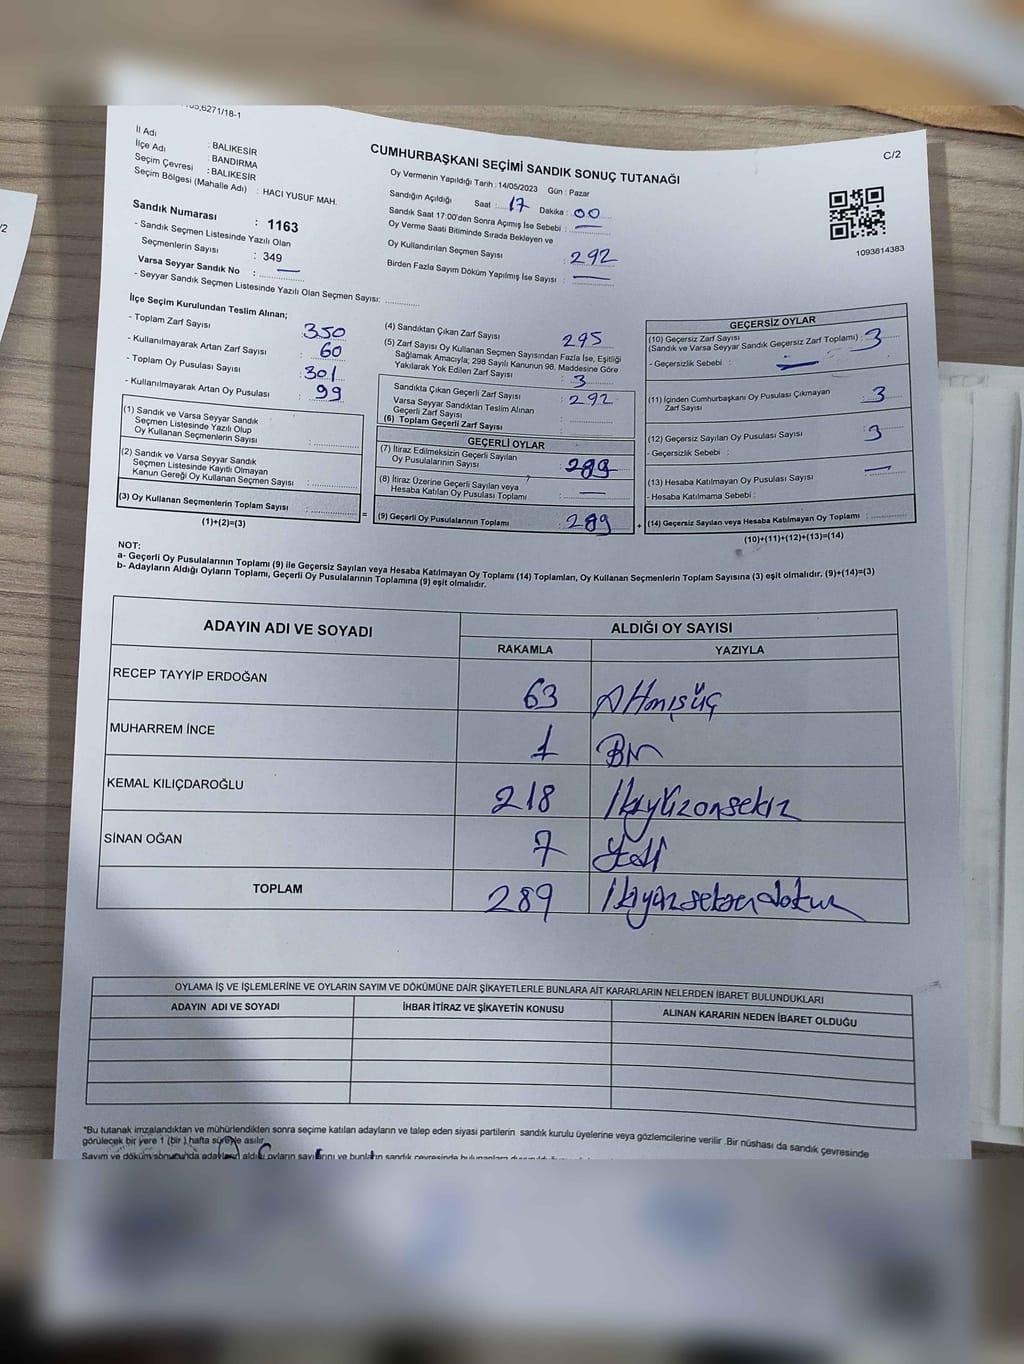 CUMHURBAŞKANI SEÇİMİ SANDIK SONUÇ TUTANAĞI
C/2
İl Adı : BALIKESİR
İlçe Adı : BANDIRMA
Seçim Çevresi : BALIKESİR
Seçim Bölgesi (Mahalle Adı) : HACI YUSUF MAH.
Sandık Numarası : 1163
- Sandık Seçmen Listesinde Yazılı Olan
Seçmenlerin Sayısı : 349
Varsa Seyyar Sandık No : —
- Seyyar Sandık Seçmen Listesinde Yazılı Olan Seçmen Sayısı: ..............
Oy Vermenin Yapıldığı Tarih : 14/05/2023 Gün : Pazar
Sandığın Açıldığı Saat : 17 Dakika : 00
Sandık Saat 17:00'den Sonra Açımış İse Sebebi : —
Oy Verme Saati Bitiminde Sırada Bekleyen ve
Oy Kullandırılan Seçmen Sayısı : 292
Birden Fazla Sayım Döküm Yapılmış İse Sayısı : —
1093814383
İlçe Seçim Kurulundan Teslim Alınan;
- Toplam Zarf Sayısı 350
- Kullanılmayarak Artan Zarf Sayısı : 60
- Toplam Oy Pusulası Sayısı : 301
- Kullanılmayarak Artan Oy Pusulası : 99
(1) Sandık ve Varsa Seyyar Sandık
Seçmen Listesinde Yazılı Olup
Oy Kullanan Seçmenlerin Sayısı : ..............
(2) Sandık ve Varsa Seyyar Sandık
Seçmen Listesinde Kayıtlı Olmayan
Kanun Gereği Oy Kullanan Seçmen Sayısı : ..............
(3) Oy Kullanan Seçmenlerin Toplam Sayısı : ..............
(1)+(2)=(3)
(4) Sandıktan Çıkan Zarf Sayısı 295
(5) Zarf Sayısı Oy Kullanan Seçmen Sayısından Fazla İse, Eşitliği
Sağlamak Amacıyla; 298 Sayılı Kanunun 98. Maddesine Göre
Yakılarak Yok Edilen Zarf Sayısı : 3
Sandıkta Çıkan Geçerli Zarf Sayısı : 292
Varsa Seyyar Sandıktan Teslim Alınan
Geçerli Zarf Sayısı : ..............
(6) Toplam Geçerli Zarf Sayısı :
GEÇERLİ OYLAR
(7) İtiraz Edilmeksizin Geçerli Sayılan
Oy Pusulalarının Sayısı : 289
(8) İtiraz Üzerine Geçerli Sayılan veya
Hesaba Katılan Oy Pusulası Toplamı : —
= (9) Geçerli Oy Pusulalarının Toplamı : 289
GEÇERSİZ OYLAR
(10) Geçersiz Zarf Sayısı
(Sandık ve Varsa Seyyar Sandık Geçersiz Zarf Toplamı) : 3
- Geçersizlik Sebebi : —
(11) İçinden Cumhurbaşkanı Oy Pusulası Çıkmayan
Zarf Sayısı : 3
(12) Geçersiz Sayılan Oy Pusulası Sayısı : 3
- Geçersizlik Sebebi :
(13) Hesaba Katılmayan Oy Pusulası Sayısı : —
- Hesaba Katılmama Sebebi :
+ (14) Geçersiz Sayılan veya Hesaba Katılmayan Oy Toplamı : ..............
(10)+(11)+(12)+(13)=(14)
NOT:
a- Geçerli Oy Pusulalarının Toplamı (9) ile Geçersiz Sayılan veya Hesaba Katılmayan Oy Toplamı (14) Toplamları, Oy Kullanan Seçmenlerin Toplam Sayısına (3) eşit olmalıdır. (9)+(14)=(3)
b- Adayların Aldığı Oyların Toplamı, Geçerli Oy Pusulalarının Toplamına (9) eşit olmalıdır.
ADAYIN ADI VE SOYADI ALDIĞI OY SAYISI
RAKAMLA YAZIYLA
RECEP TAYYİP ERDOĞAN 63 Altmışüç
MUHARREM İNCE 1 Bir
KEMAL KILIÇDAROĞLU 218 İkiyüzonsekiz
SİNAN OĞAN 7 Yedi
TOPLAM 289 İkiyüzseksendokuz
OYLAMA İŞ VE İŞLEMLERİNE VE OYLARIN SAYIM VE DÖKÜMÜNE DAİR ŞİKAYETLERLE BUNLARA AİT KARARLARIN NELERDEN İBARET BULUNDUKLARI
ADAYIN ADI VE SOYADI İHBAR İTİRAZ VE ŞİKAYETİN KONUSU ALINAN KARARIN NEDEN İBARET OLDUĞU
*Bu tutanak imzalandıktan ve mühürlendikten sonra seçime katılan adayların ve talep eden siyasi partilerin sandık kurulu üyelerine veya gözlemcilerine verilir .Bir nüshası da sandık çevresinde
görülecek bir yere 1 (bir ) hafta süreyle asılır.